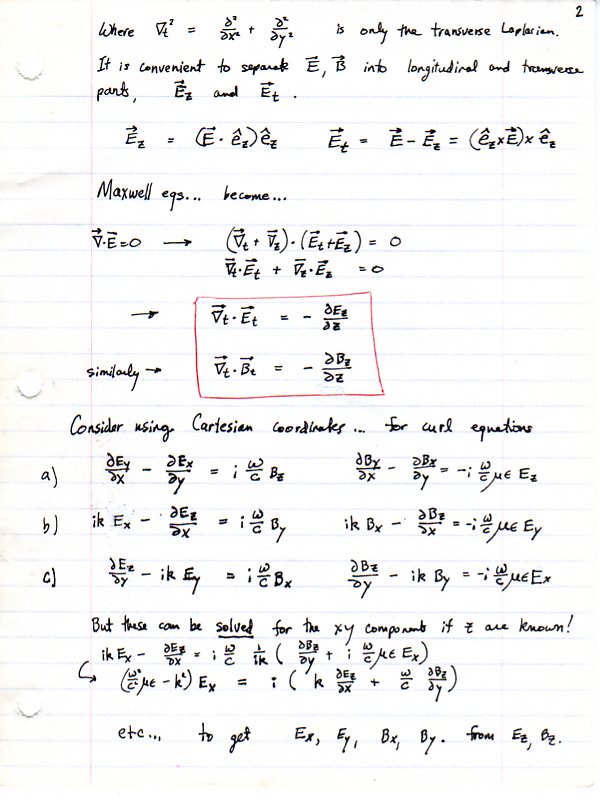 2
Where ∇t² = ∂²/∂x² + ∂²/∂y² is only the transverse Laplacian.
It is convenient to separate E⃗, B⃗ into longitudinal and transverse
parts, E⃗z and E⃗t.
E⃗z = (E⃗ · êz)êz E⃗t = E⃗ - E⃗z = (êz×E⃗)× êz
Maxwell eqs... become...
∇⃗·E⃗=0 → (∇⃗t + ∇⃗z)·(E⃗t+E⃗z) = 0
∇⃗t·E⃗t + ∇⃗z·E⃗z = 0
→ ∇⃗t·E⃗t = - ∂Ez/∂z
similarly → ∇⃗t·B⃗t = - ∂Bz/∂z
Consider using Cartesian coordinates... for curl equations
a) ∂Ey/∂x - ∂Ex/∂y = i ω/c Bz ∂By/∂x - ∂Bx/∂y = -i ω/c μϵ Ez
b) ik Ex - ∂Ez/∂x = i ω/c By ik Bx - ∂Bz/∂x = -i ω/c μϵ Ey
c) ∂Ez/∂y - ik Ey = i ω/c Bx ∂Bz/∂y - ik By = -i ω/c μϵ Ex
But these can be solved for the xy components if z are known!
ik Ex - ∂Ez/∂x = i ω/c 1/ik ( ∂Bz/∂y + i ω/c μϵ Ex)
↳ (ω²/c² μϵ - k²) Ex = i ( k ∂Ez/∂x + ω/c ∂Bz/∂y)
etc... to get Ex, Ey, Bx, By. from Ez, Bz.